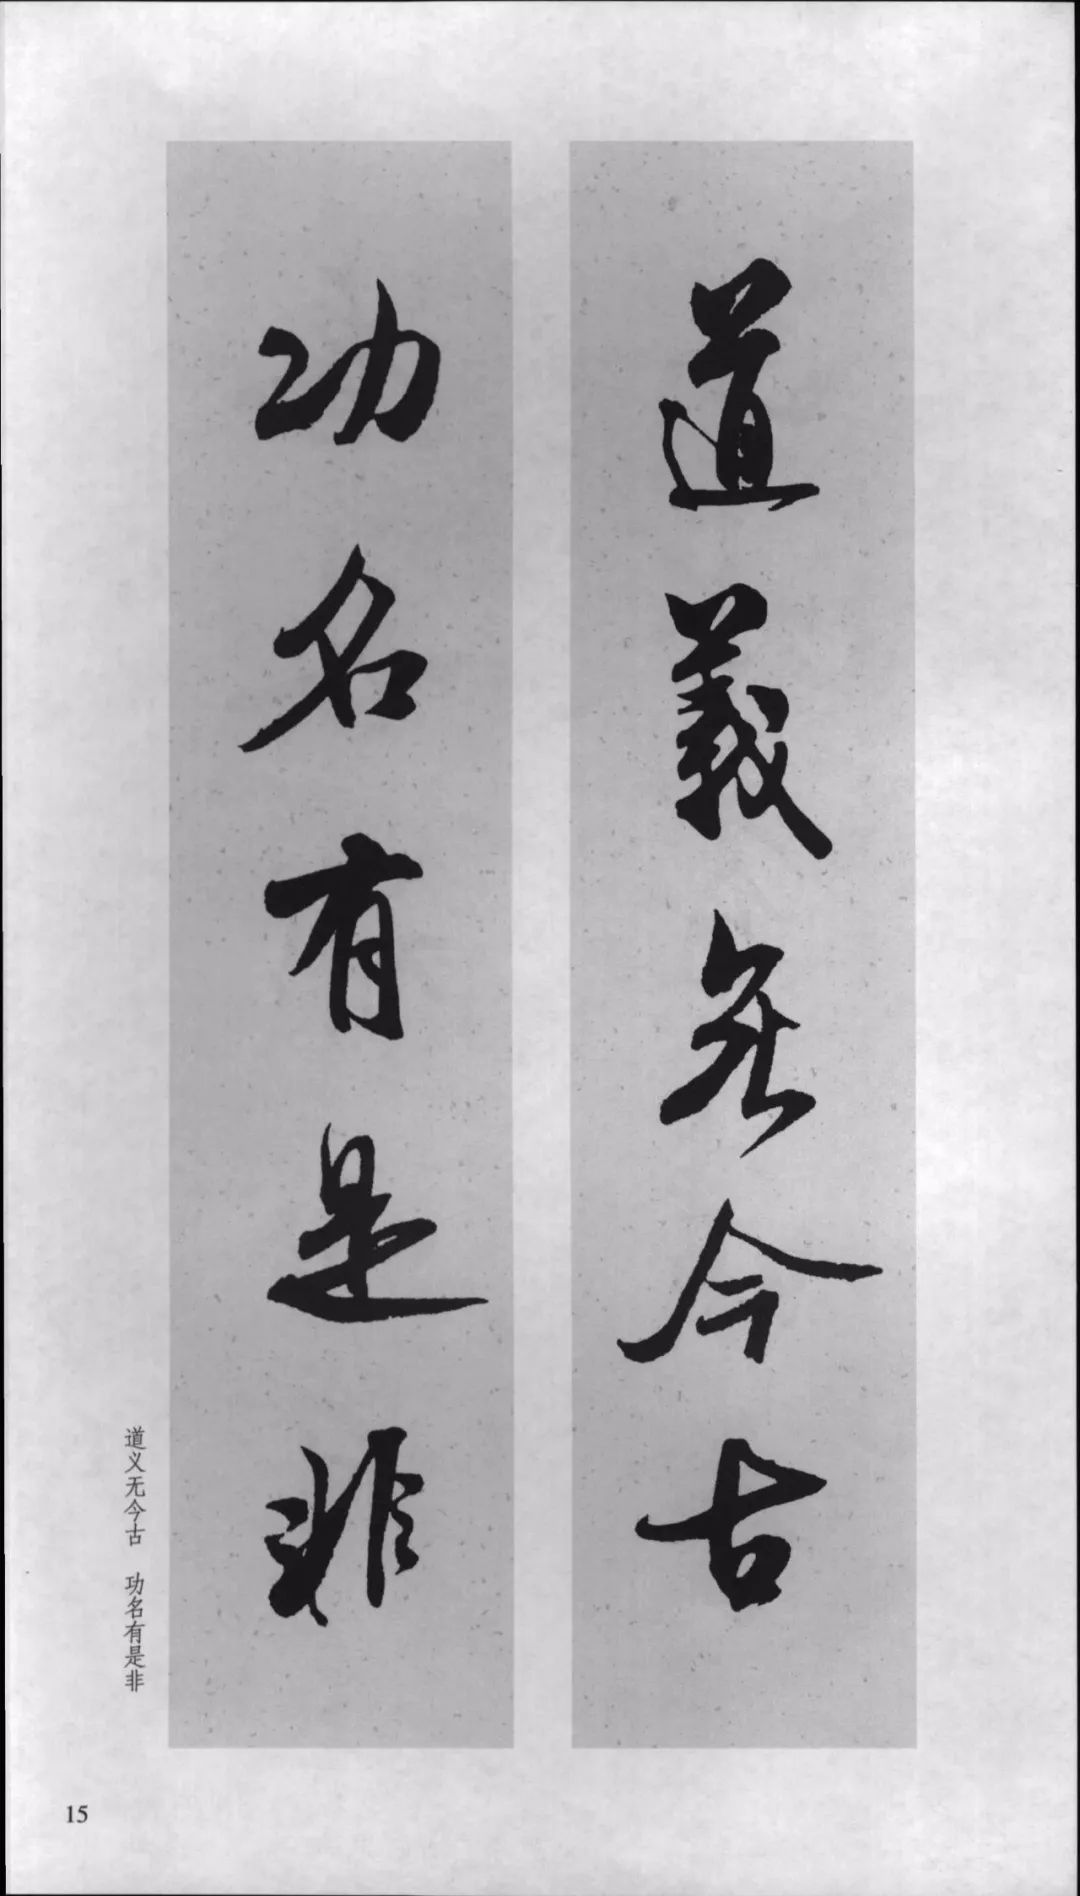 道義無今古
功名有是非
道义无今古 功名有是非
15